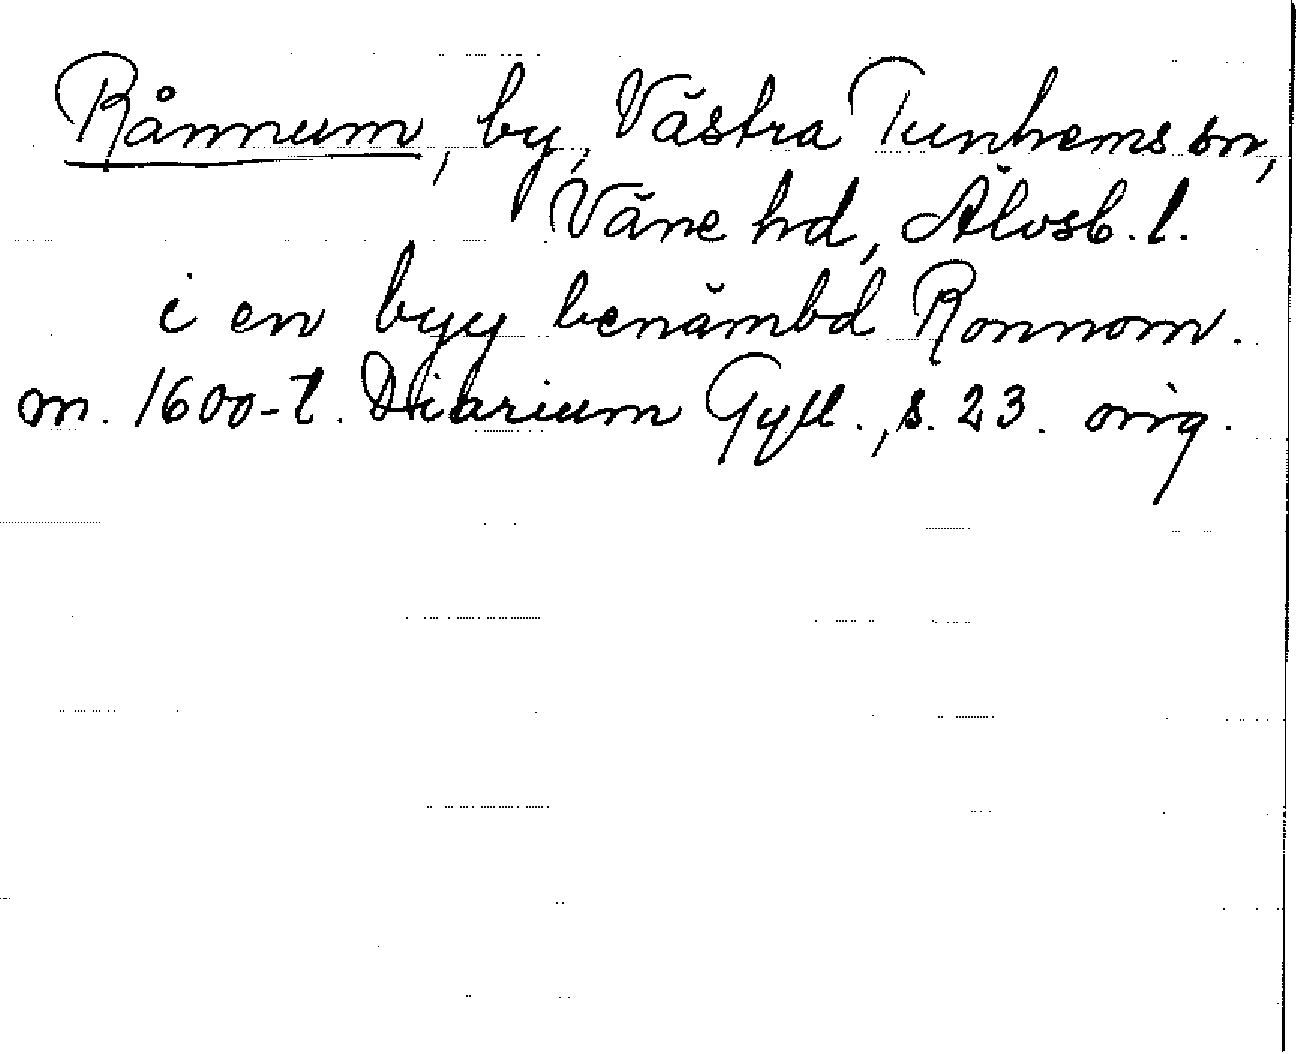 Rånnum, by, Västra Tunhems sn,
Väne hd, Älvsb. l.
i en byy benämbd Ronnom.
m. 1600-t. Diarium Gyll., s. 23. orig.